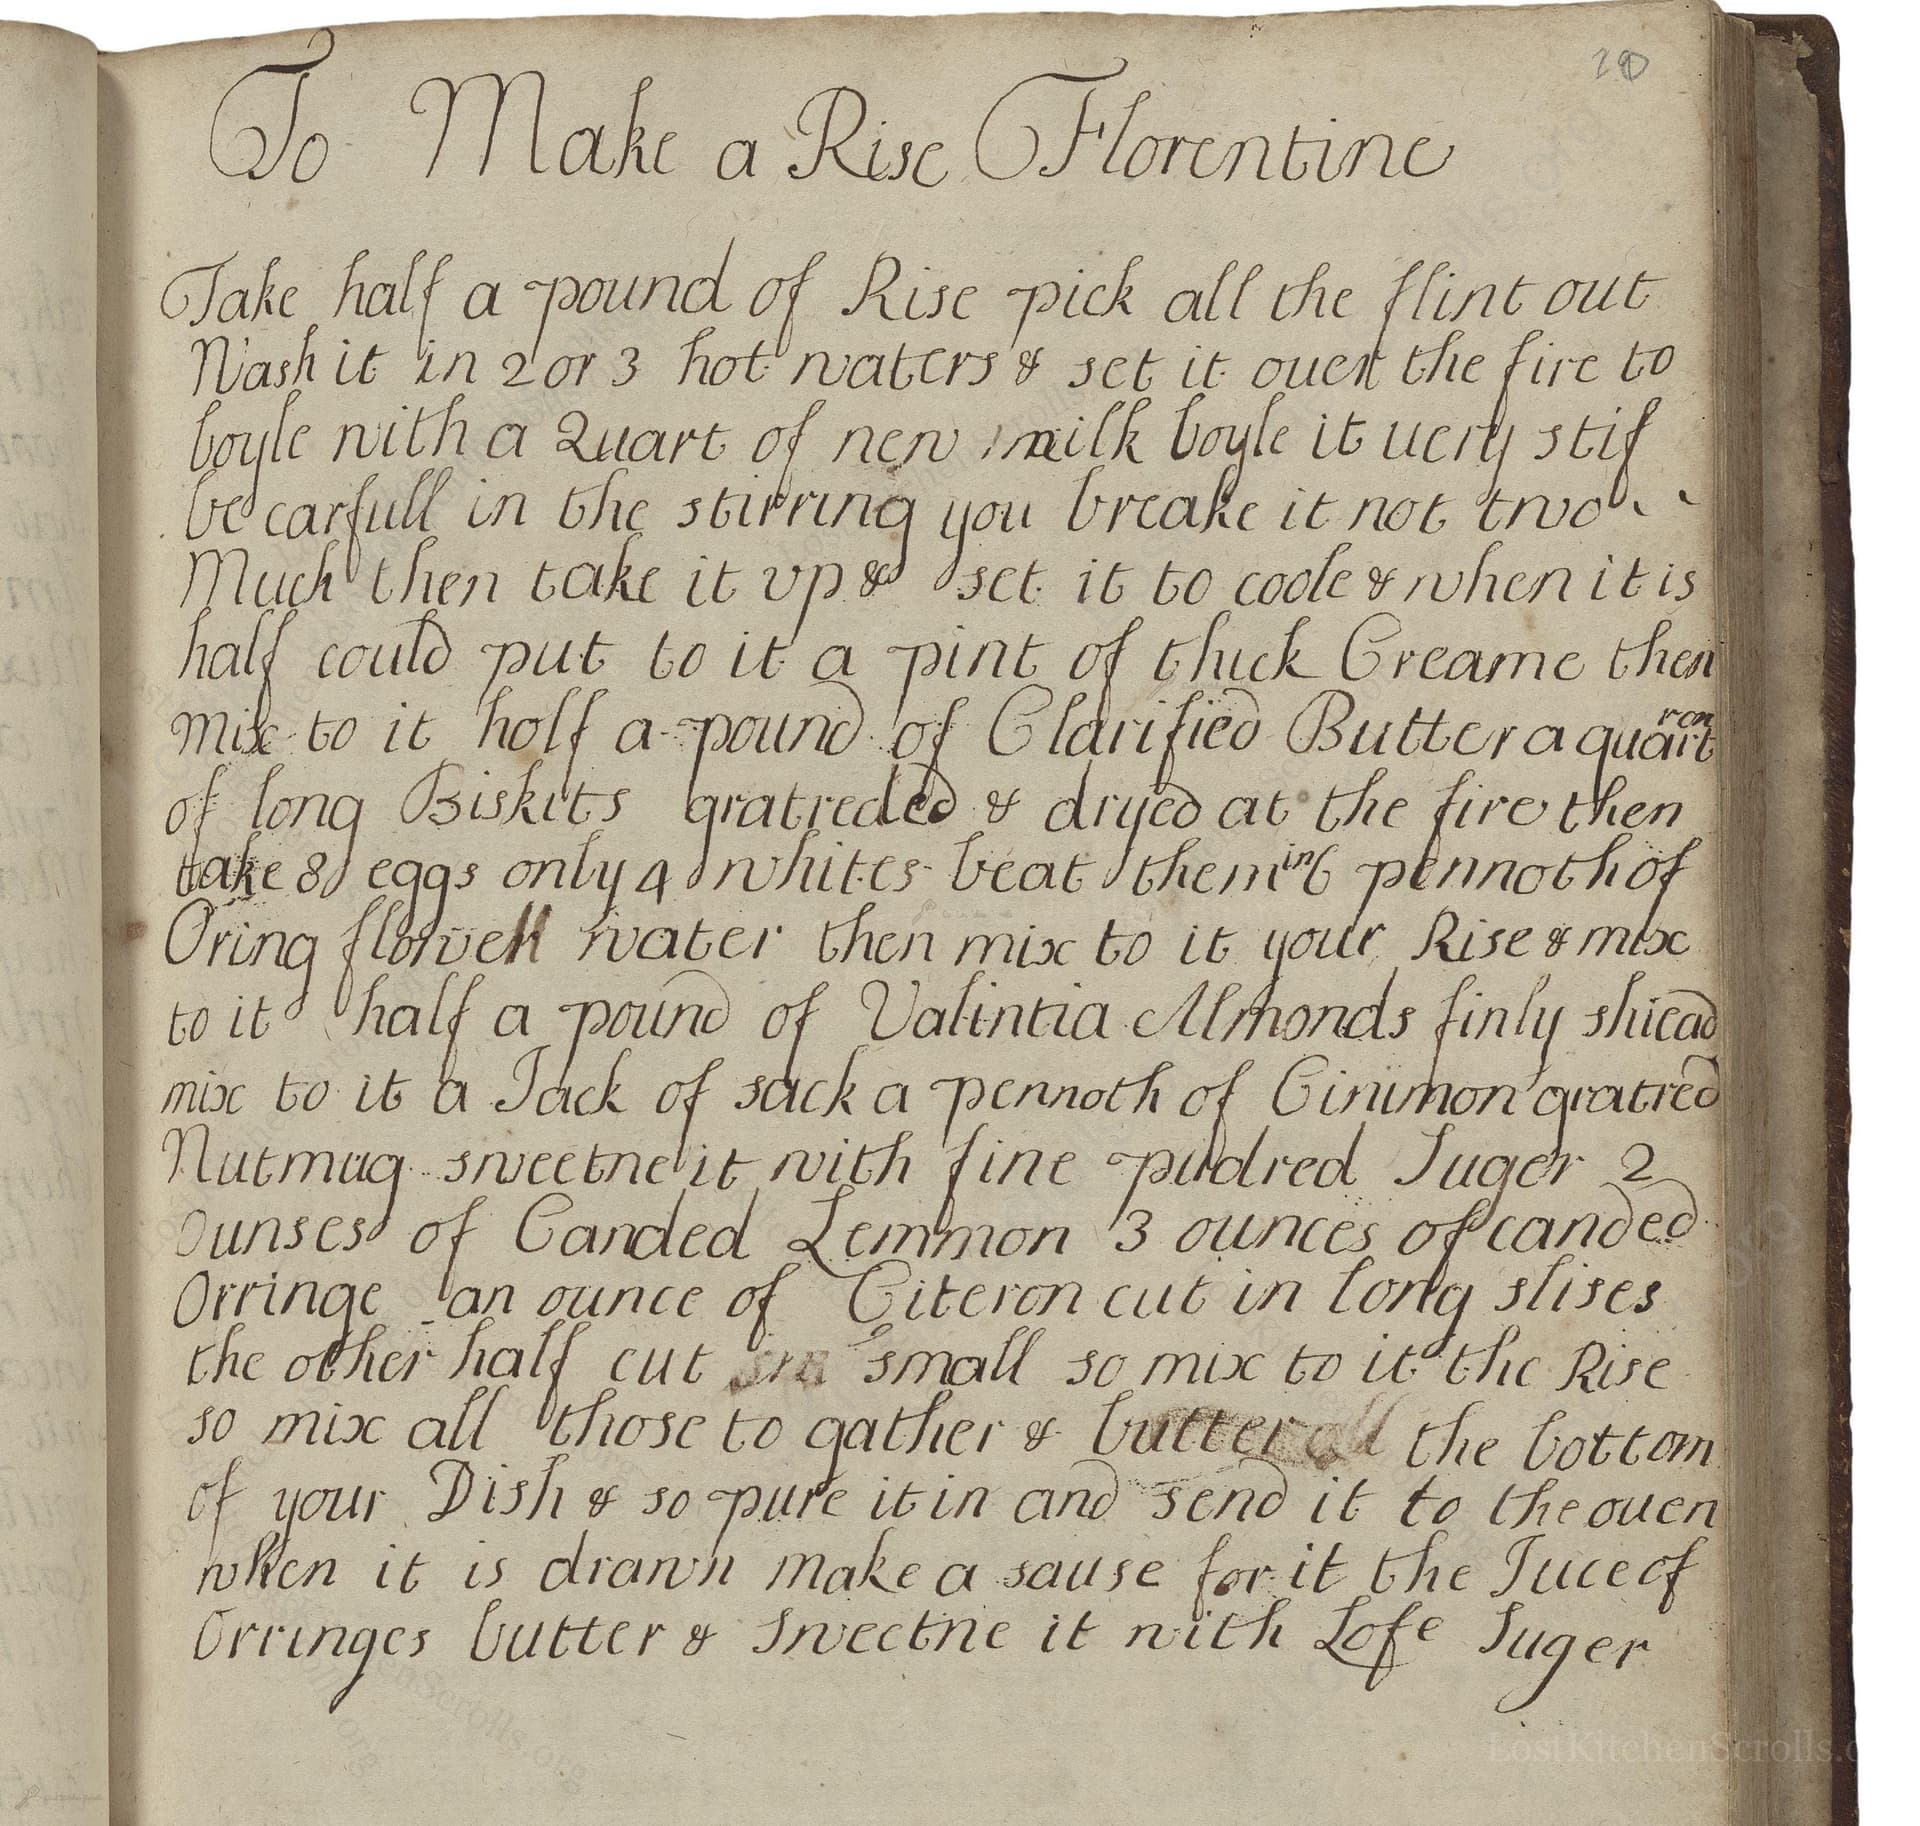 20
To Make a Rise Florentine
Take half a pound of Rise pick all the flint out
Wash it in 2 or 3 hot waters & set it ouer the fire to
boyle with a Quart of new milk boyle it uery stif
be carfull in the stirring you breake it not two
Much then take it vp & set it to coole & when it is
half could put to it a pint of thick Creame then
mix to it holf a pound of Clarified Butter a quart
ron
of long Biskits gratreded & dryed at the fire then
take 8 eggs only 4 whites beat them in 6 pennoth of
Oring flower water then mix to it your Rise & mix
to it half a pound of Valintia Almonds finly
mix to it a Jack of sack a pennoth of Cinimon gratred
Nutmug sweetne it with fine pudred Suger 2
ounses of Canded Lemmon 3 ounces of canded
Orringe an ounce of Citeron cut in long slises
the other half cut small so mix to it the Rise
so mix all those to gather & butter all the bottom
of your Dish & so pure it in and send it to the ouen
when it is drawn make a sause for it the Juce of
Orringes butter & Sweetne it with Lofe Suger
LostKitchenScrolls.o